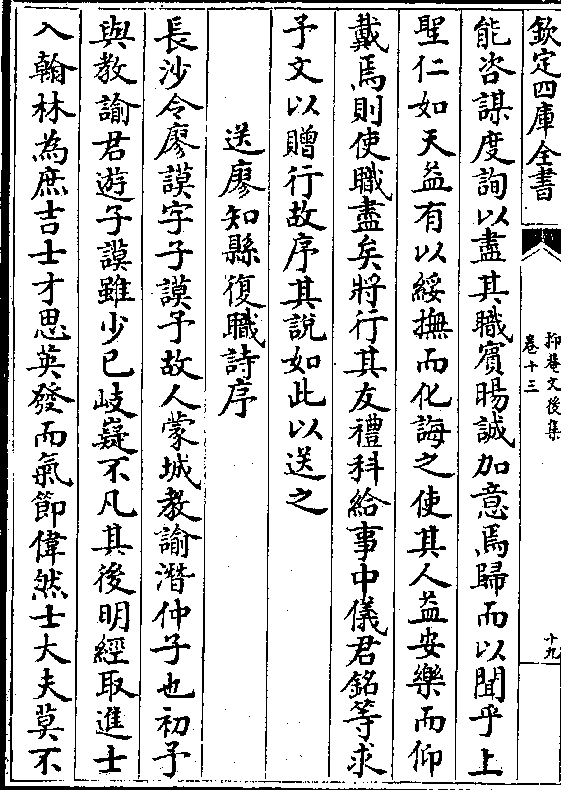 欽定四庫全書
抑菴文後集
卷十三
十九
能咨謀度詢以盡其職賓暘誠加意焉歸而以聞乎上
聖仁如天益有以綏撫而化誨之使其人益安樂而仰
戴焉則使職盡矣將行其友禮科給事中儀君銘等求
予文以贈行故序其說如此以送之
送廖知縣復職詩序
長沙令廖謨字子謨予故人蒙城教諭潛仲子也初予
與教諭君遊子謨雖少已岐嶷不凡其後明經取進士
入翰林為庶吉士才思英發而氣節偉然士大夫莫不